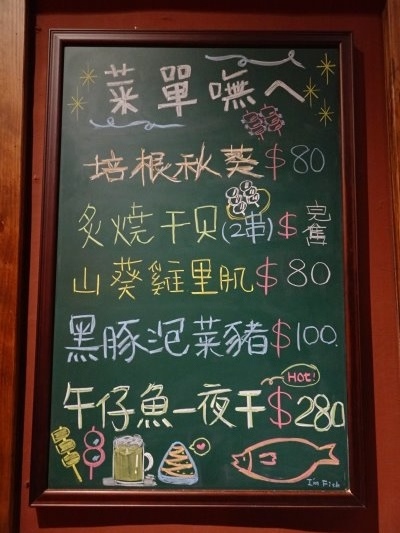 菜單嘸へ
培根秋葵$80
炙燒干贝(2串)$完售
山葵雞里肌$80
黑豚泡菜豬$100.
HOT!
午仔魚一夜干$280
I'm Fish